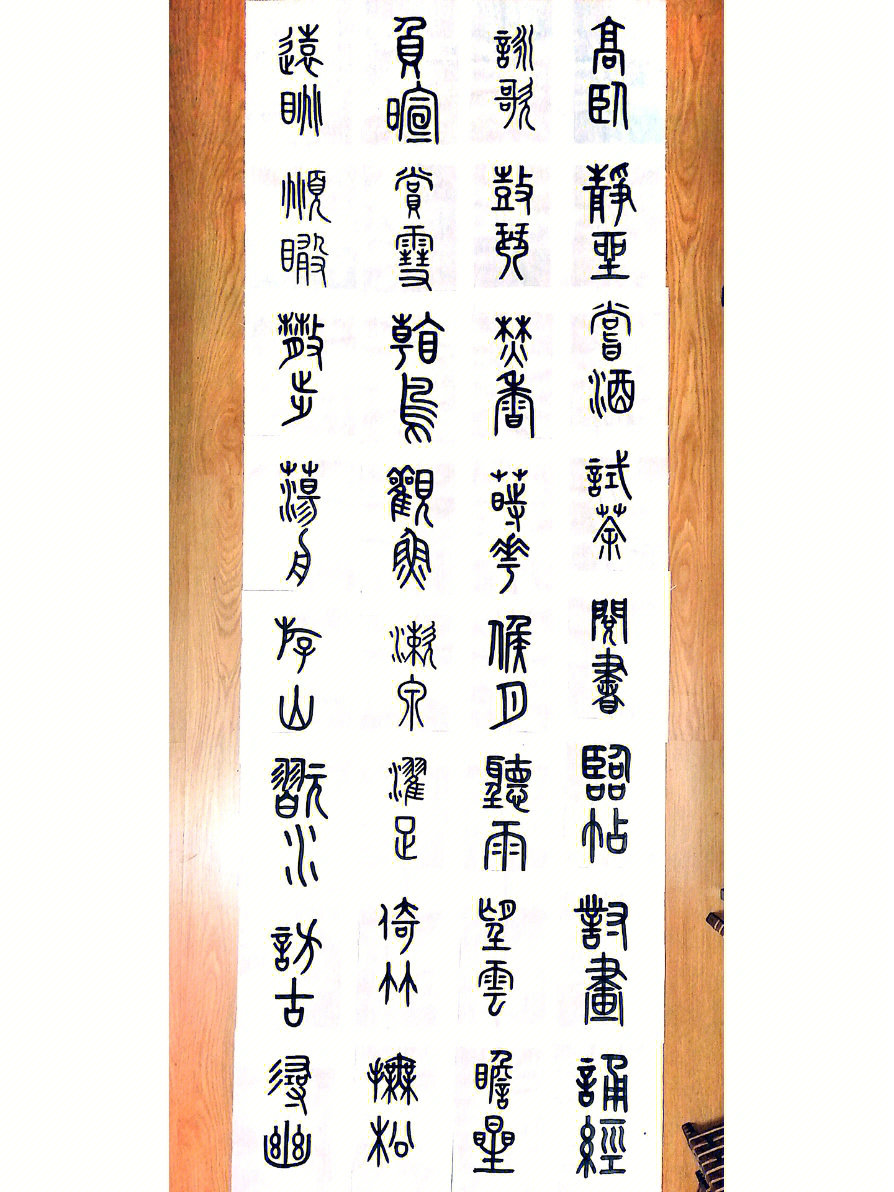 高臥靜坐嘗酒試茶閱書臨帖對畫誦經
詠歌鼓琴焚香蒔花候月聽雨望雲瞻星
負暄賞雪翰鳥觀魚漱泉濯足倚林撫松
遠眺俯瞰散步蕩舟存山翫水訪古尋幽